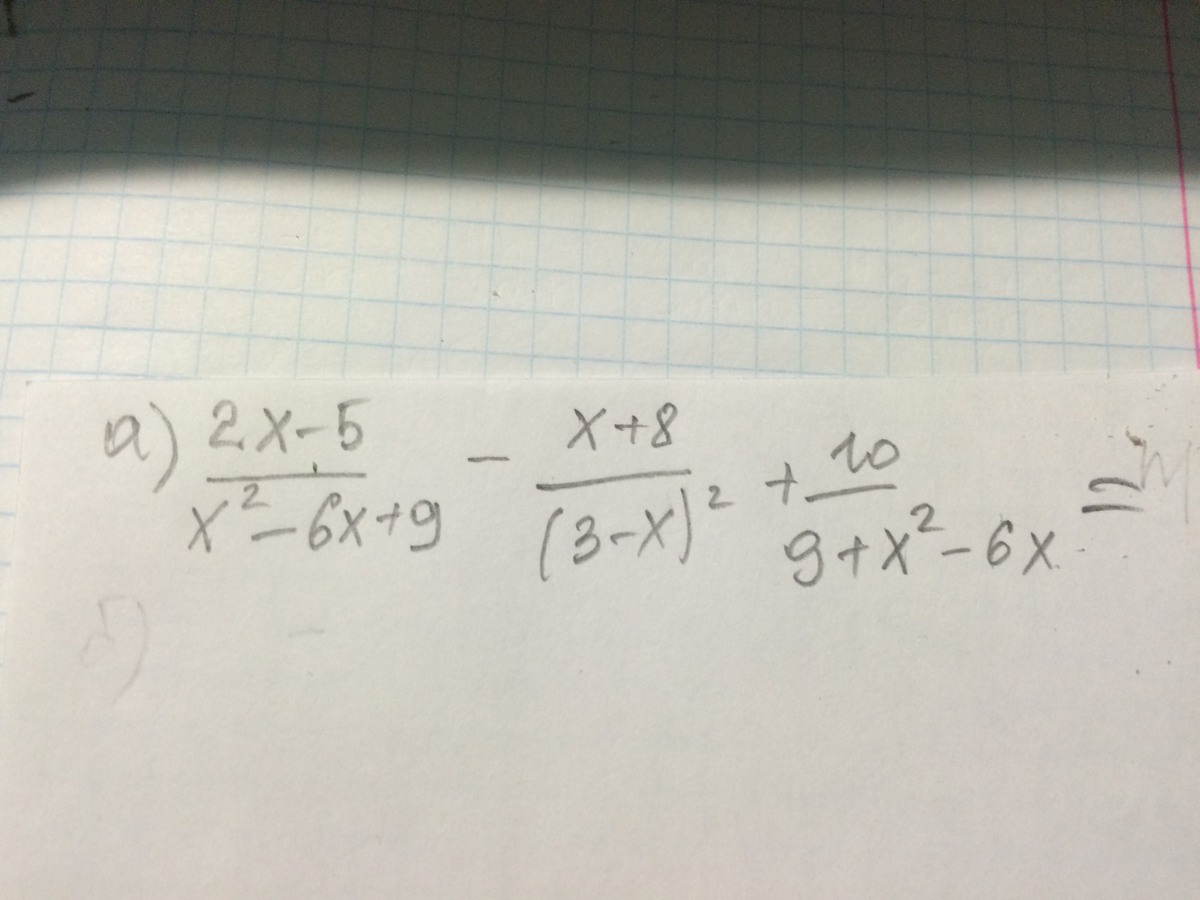 а) (2x-5)/(x²-6x+9) - (x+8)/(3-x)² + 10/(9+x²-6x) =